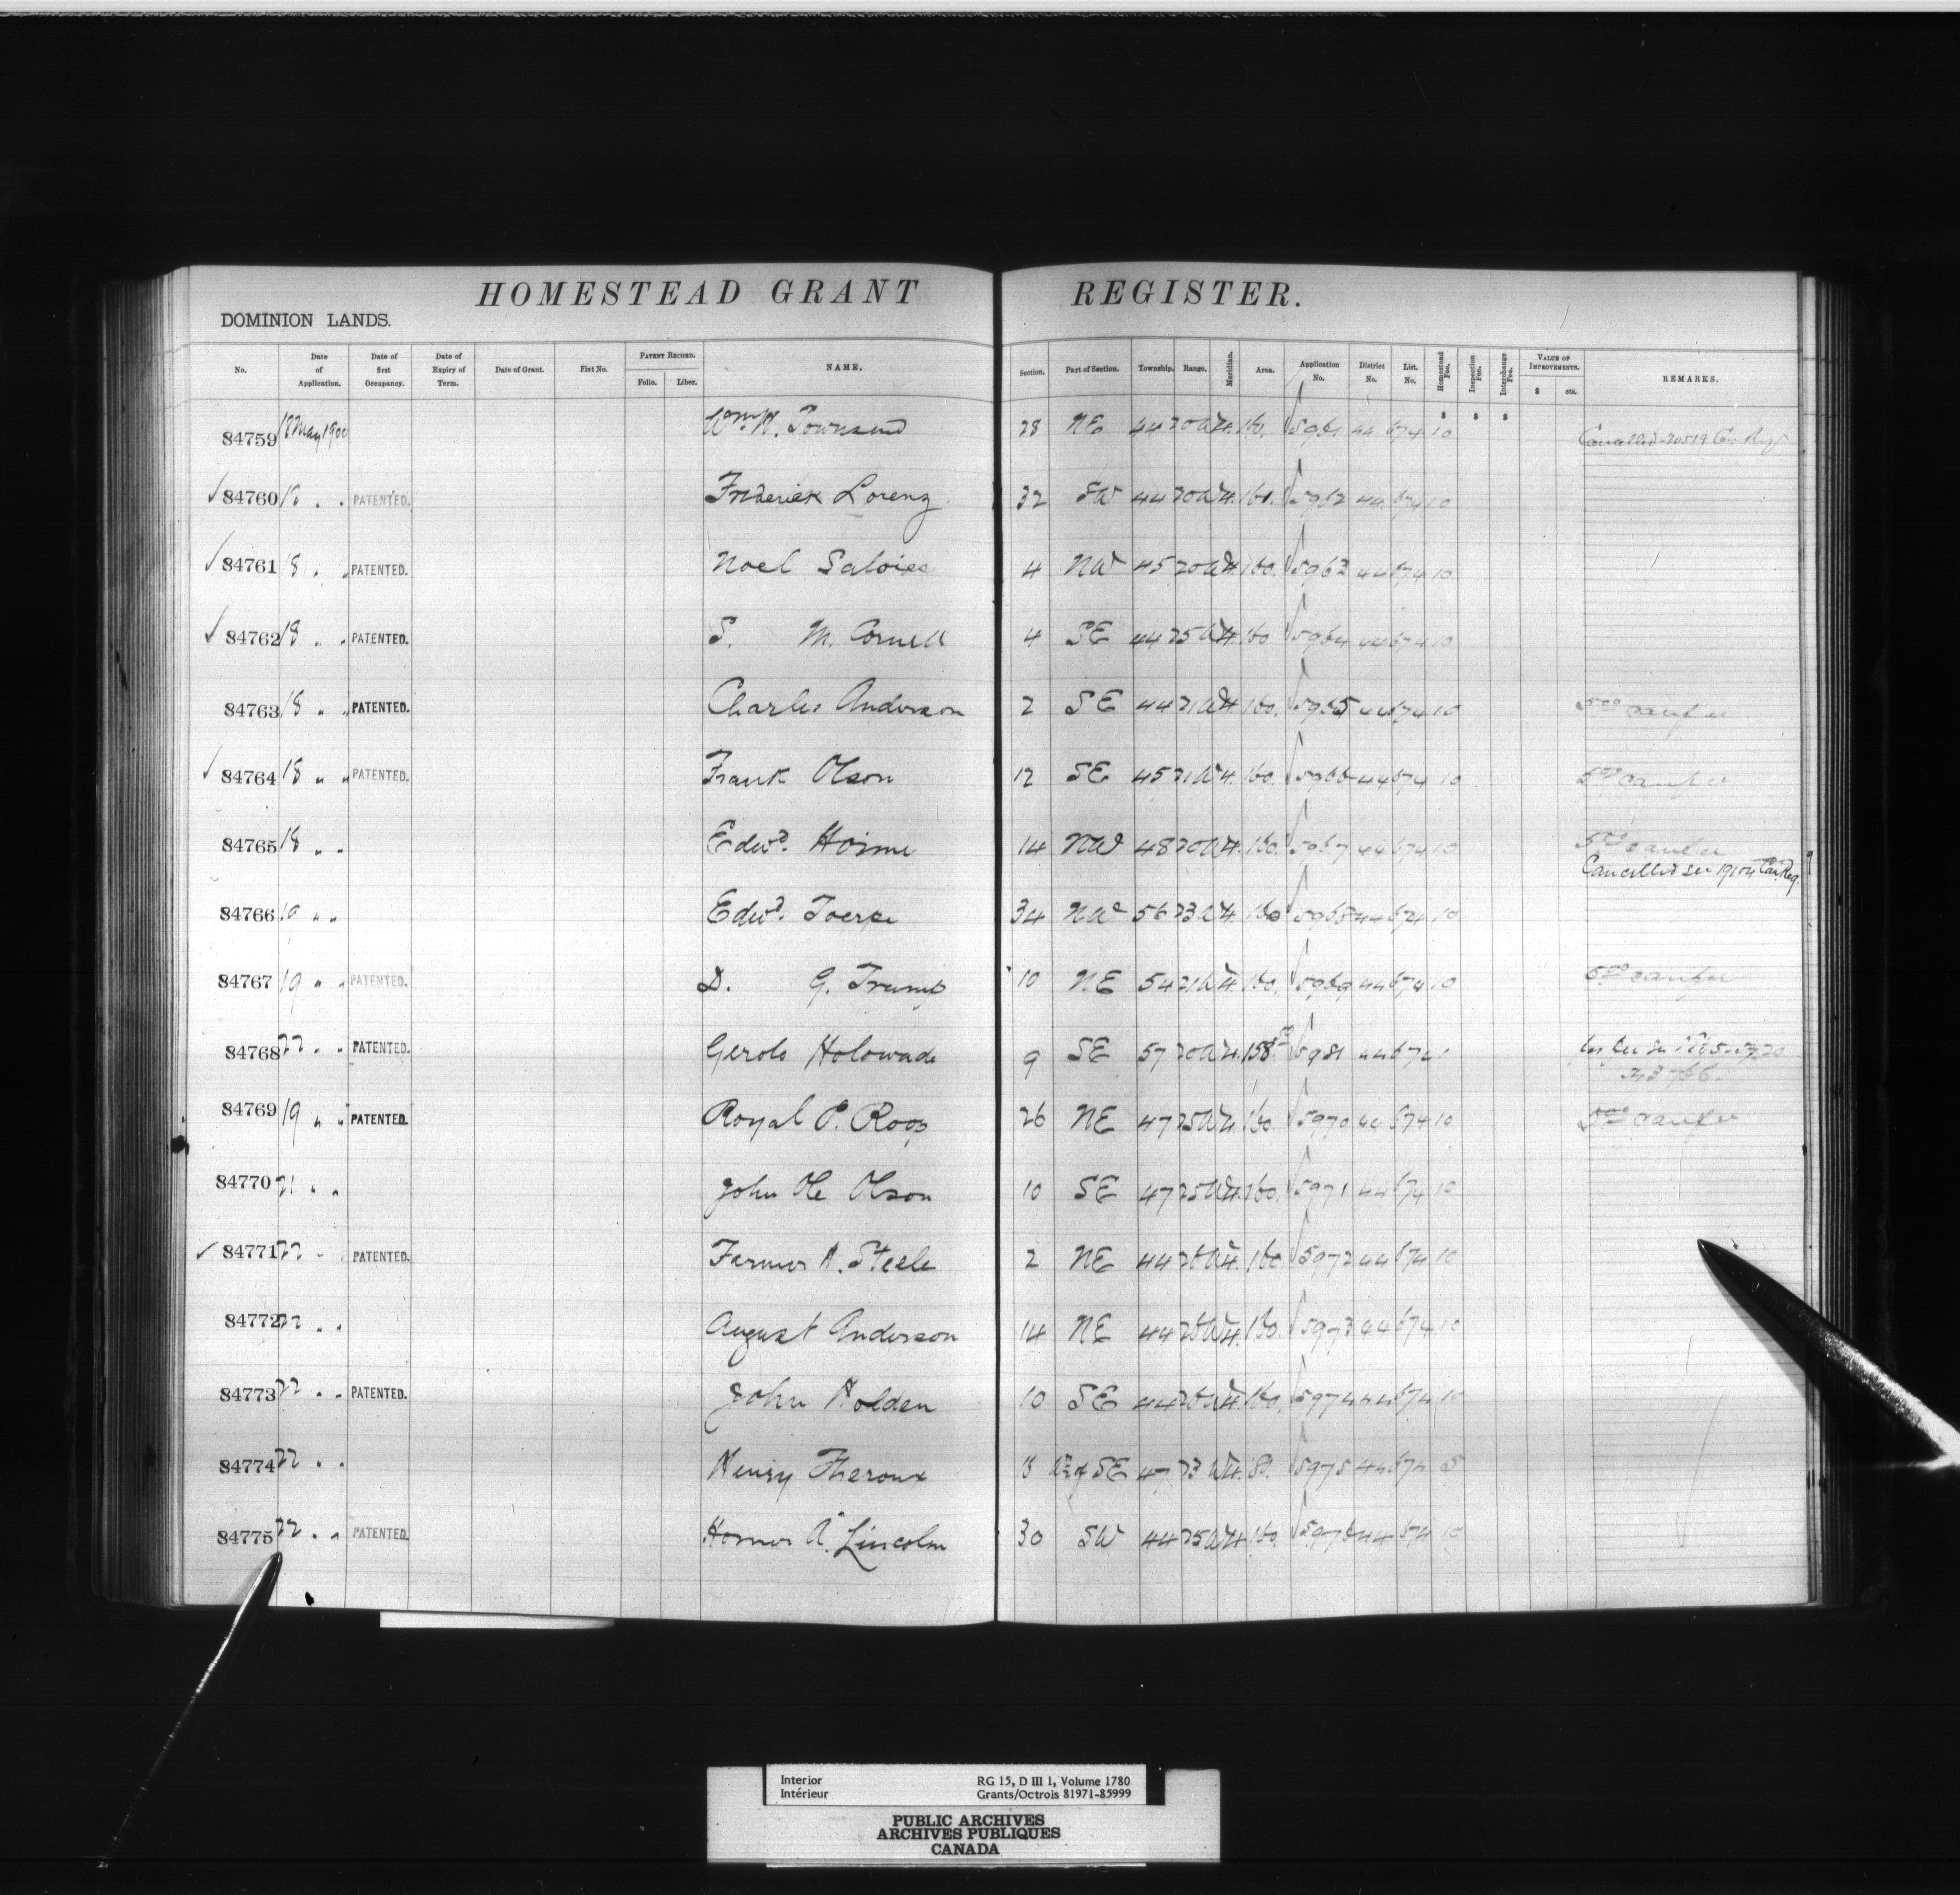 HOMESTEAD GRANT REGISTER.
DOMINION LANDS.
No. Date of Application. Date of first Occupancy. Date of Expiry of Term. Date of Grant. Fist No. PATENT RECORD. Folio. Liber. NAME. Section. Part of Section. Township. Range. Meridian. Area. Application No. District No. List. No. Homestead Fee. Inspection Fee. Interchange Fee. VALUE OF IMPROVEMENTS. $ cts. REMARKS.
84759 18 May 1900 Wm. W. Townsend 28 NE 44 20 W 4. 160. 5961 44 674 10 Cancelled 20519 Can Reg
84760 18 " " PATENTED. Frederick Lorenz 32 SW 44 20 W 4. 160. 5962 44 674 10
84761 18 " " PATENTED. Noel Saloise 4 NW 45 20 W 4. 160. 5963 44 674 10
84762 18 " " PATENTED. S. M. Cornell 4 SE 44 25 W 4. 160 5964 44 674 10
84763 18 " " PATENTED. Charles Anderson 2 SE 44 21 W 4. 160. 5965 44 674 10 5.00 can fee
84764 18 " " PATENTED. Frank Olson 12 SE 45 21 W 4. 160. 5966 44 674 10 5.00 can fee
84765 18 " " Edwd. 14 NW 48 20 W 4. 160. 5967 44 674 10 5.00 can fee
Cancelled see 19104 Can. Reg.
84766 19 " " Edwd. 34 NW 56 23 W 4. 160 5968 44 674 10
84767 19 " " PATENTED. D. G. Trump 10 NE 54 21 W 4. 160. 5969 44 674 10 5.00 can fee
84768 22 " " PATENTED. 9 SE 57 20 W 4. 158. 5981 44 674
84769 19 " " PATENTED. Royal P. Roop 26 NE 47 25 W 4. 160. 5970 44 674 10 5.00 can fee
84770 21 " " John Ole Olson 10 SE 47 25 W 4. 160. 5971 44 674 10
84771 22 " " PATENTED. Farmer A. Steele 2 NE 44 26 W 4. 160. 5972 44 674 10
84772 22 " " August Anderson 14 NE 44 26 W 4. 160. 5973 44 674 10
84773 22 " " PATENTED. John Holden 10 SE 44 26 W 4. 160. 5974 44 674 10
84774 22 " " Henry Theroux SE 47 23 W 4. 80. 5975 44 674 5
84775 22 " " PATENTED. Homer A. Lincoln 30 SW 44 25 W 4. 160. 5976 44 674 10
Interior RG 15, D III 1, Volume 1780
Intérieur Grants/Octrois 81971-85999
PUBLIC ARCHIVES
ARCHIVES PUBLIQUES
CANADA